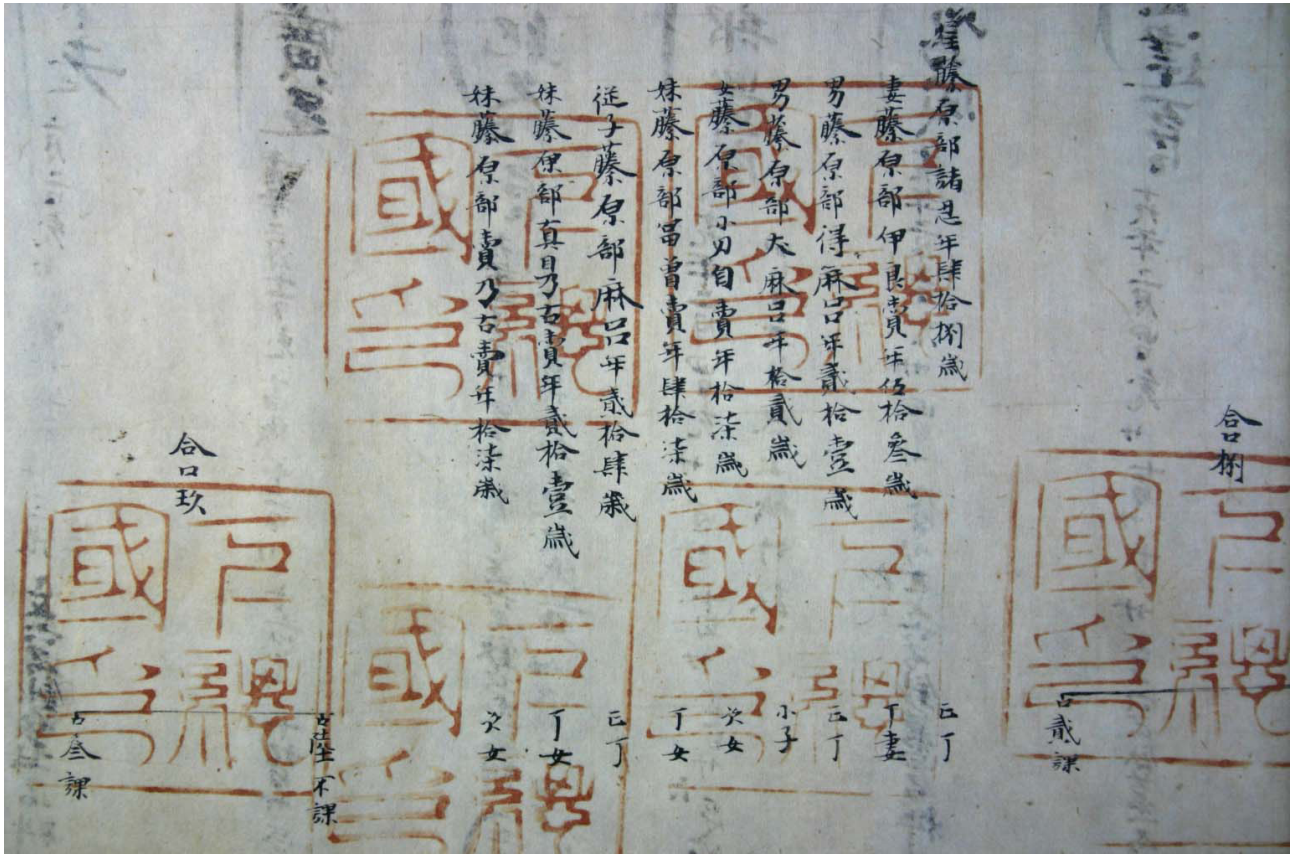 合口捌
口貳課
藤原部諸忍年肆拾捌歳 正丁
妻藤原部伊良賣年伍拾參歳 丁妻
男藤原部得麻呂年貳拾壹歳 正丁
男藤原部大麻呂年拾貳歳 小子
女藤原部小刀自賣年拾柒歳 次女
妹藤原部富曾賣年肆拾柒歳 丁女
従子藤原部麻呂年貳拾肆歳 正丁
妹藤原部真目乃古賣年貳拾壹歳 丁女
妹藤原部賣乃古賣年拾柒歳 次女
口陸不課
合口玖
口參課
下總國印
下總國印
下總國印
下總國印
下總國印
下總國印